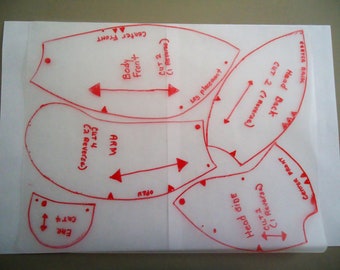 Center Front
Body
Front
Cut 2
(1 Reverse)
Leg placement
Head Back
CUT 2
(1 Reverse)
ARM
CUT 4
(2 Reverse)
OPEN
EAR
CUT 4
Head Side
CENTER FRONT